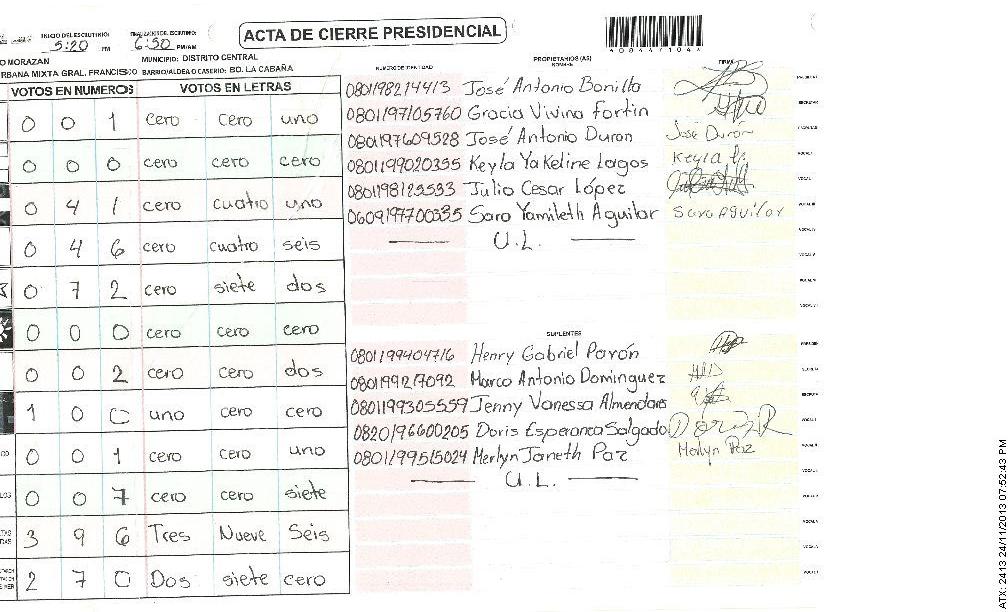 INICIO DEL ESCRUTINIO: 5:20 PM
FINALIZACION DEL ESCRUTINIO: 6:30 PM/AM
ACTA DE CIERRE PRESIDENCIAL
O MORAZAN MUNICIPIO: DISTRITO CENTRAL
RBANA MIXTA GRAL. FRANCISCO BARRIO/ALDEA O CASERIO: BO. LA CABAÑA
VOTOS EN NUMEROS VOTOS EN LETRAS
0 0 1 cero cero uno
0 0 0 cero cero cero
0 4 1 cero cuatro uno
0 4 6 cero cuatro seis
0 7 2 cero siete dos
0 0 0 cero cero cero
0 0 2 cero cero dos
1 0 0 uno cero cero
0 0 1 cero cero uno
0 0 7 cero cero siete
3 9 6 Tres Nueve Seis
2 7 0 Dos siete cero
PROPIETARIOS (AS)
NUMERO DE IDENTIDAD NOMBRE FIRMA
0801198214413 José Antonio Bonilla
0801197105760 Gracia Vivina Fortin
0801197609528 José Antonio Duron José Duron
0801199020355 Keyla Yakeline Lagos Keyla
0801198123533 Julio Cesar López
0609197700335 Sara Yamileth Aguilar Sara Aguilar
U.L.
SUPLENTES
0801199404716 Henry Gabriel Pavón
0801199217092 Marco Antonio Dominguez
0801199305559 Jenny Vanessa Almendares
0820196600205 Doris Esperanca Salgado
0801199515024 Merlyn Janeth Paz Merlyn Paz
U.L.
ATX: 2413 24/11/2013 07:52:43 PM